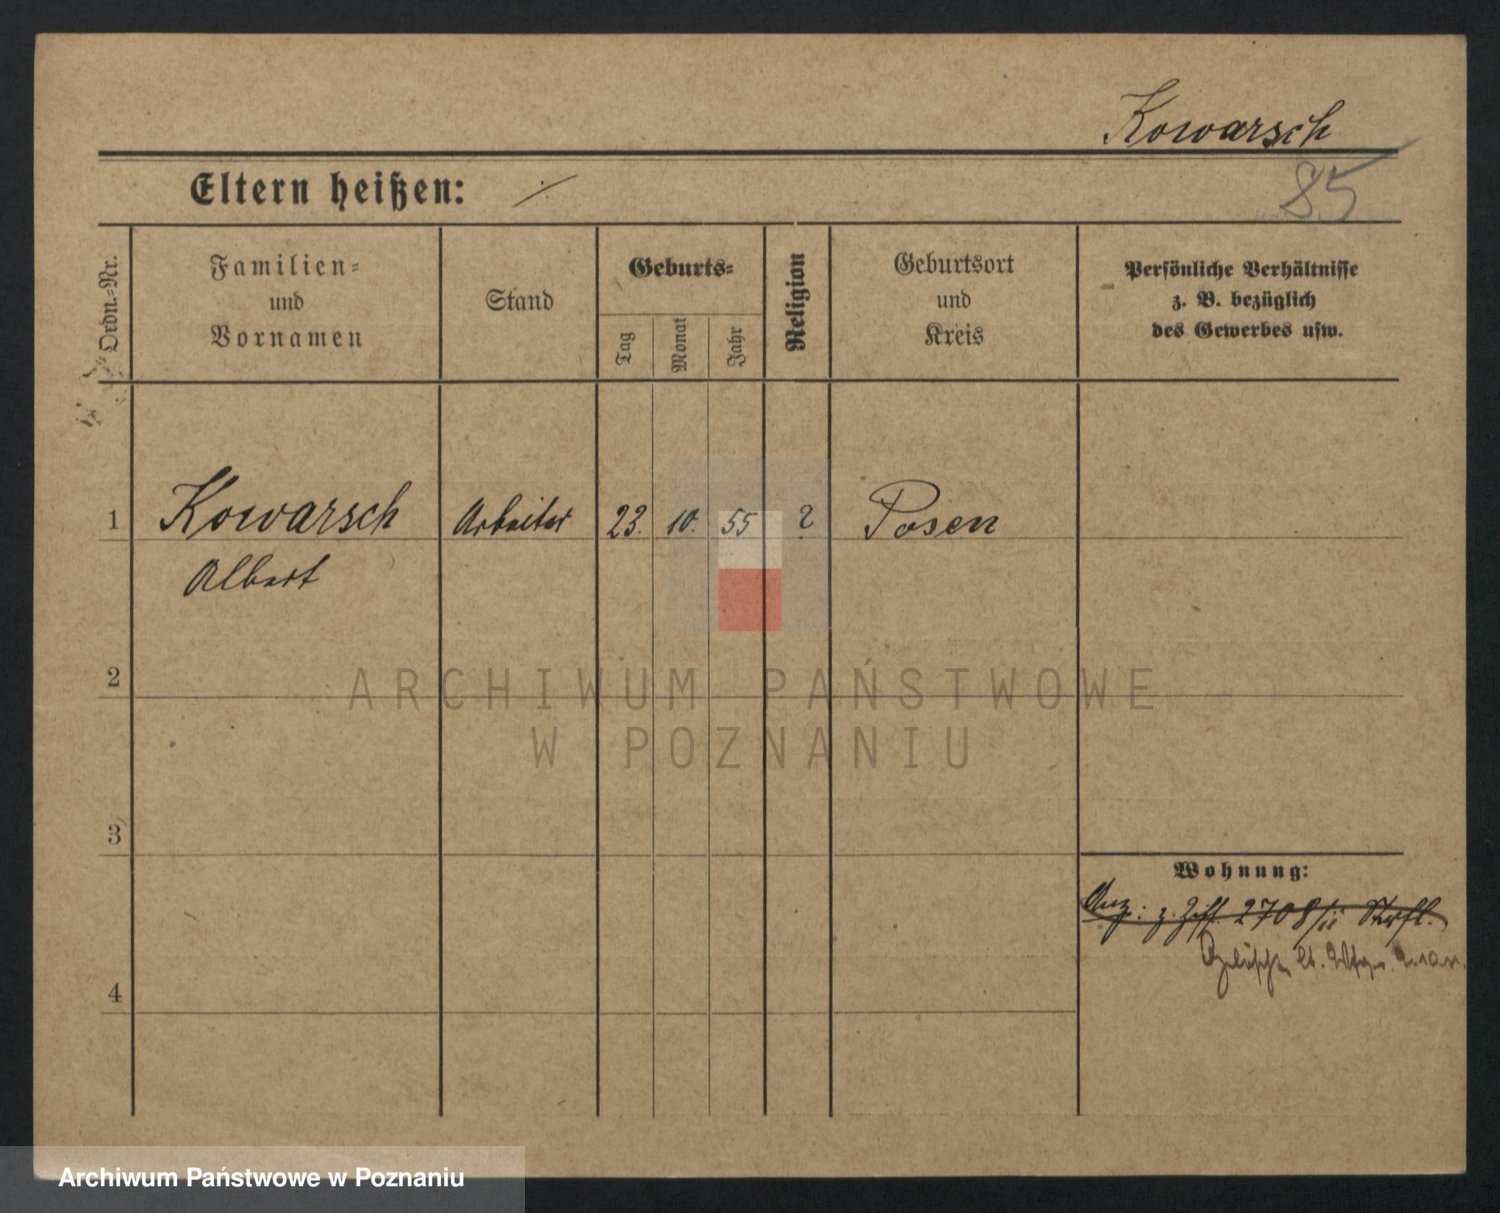 Kowarsch
Eltern heißen: ./.
85
Ordn.=Nr.
Familien=
und
Vornamen
Stand
Geburts=
Tag
Monat
Jahr
Religion
Geburtsort
und
Kreis
Persönliche Verhältnisse
z. B. bezüglich
des Gewerbes usw.
1 Kowarsch Arbeiter 23. 10. 55 ? Posen
Albert
2
ARCHIWUM PAŃSTWOWE
W POZNANIU
3
Wohnung:
Anz: z. Ziff. 2708/11 Strfl.
Gelöscht lt.
4
Archiwum Państwowe w Poznaniu